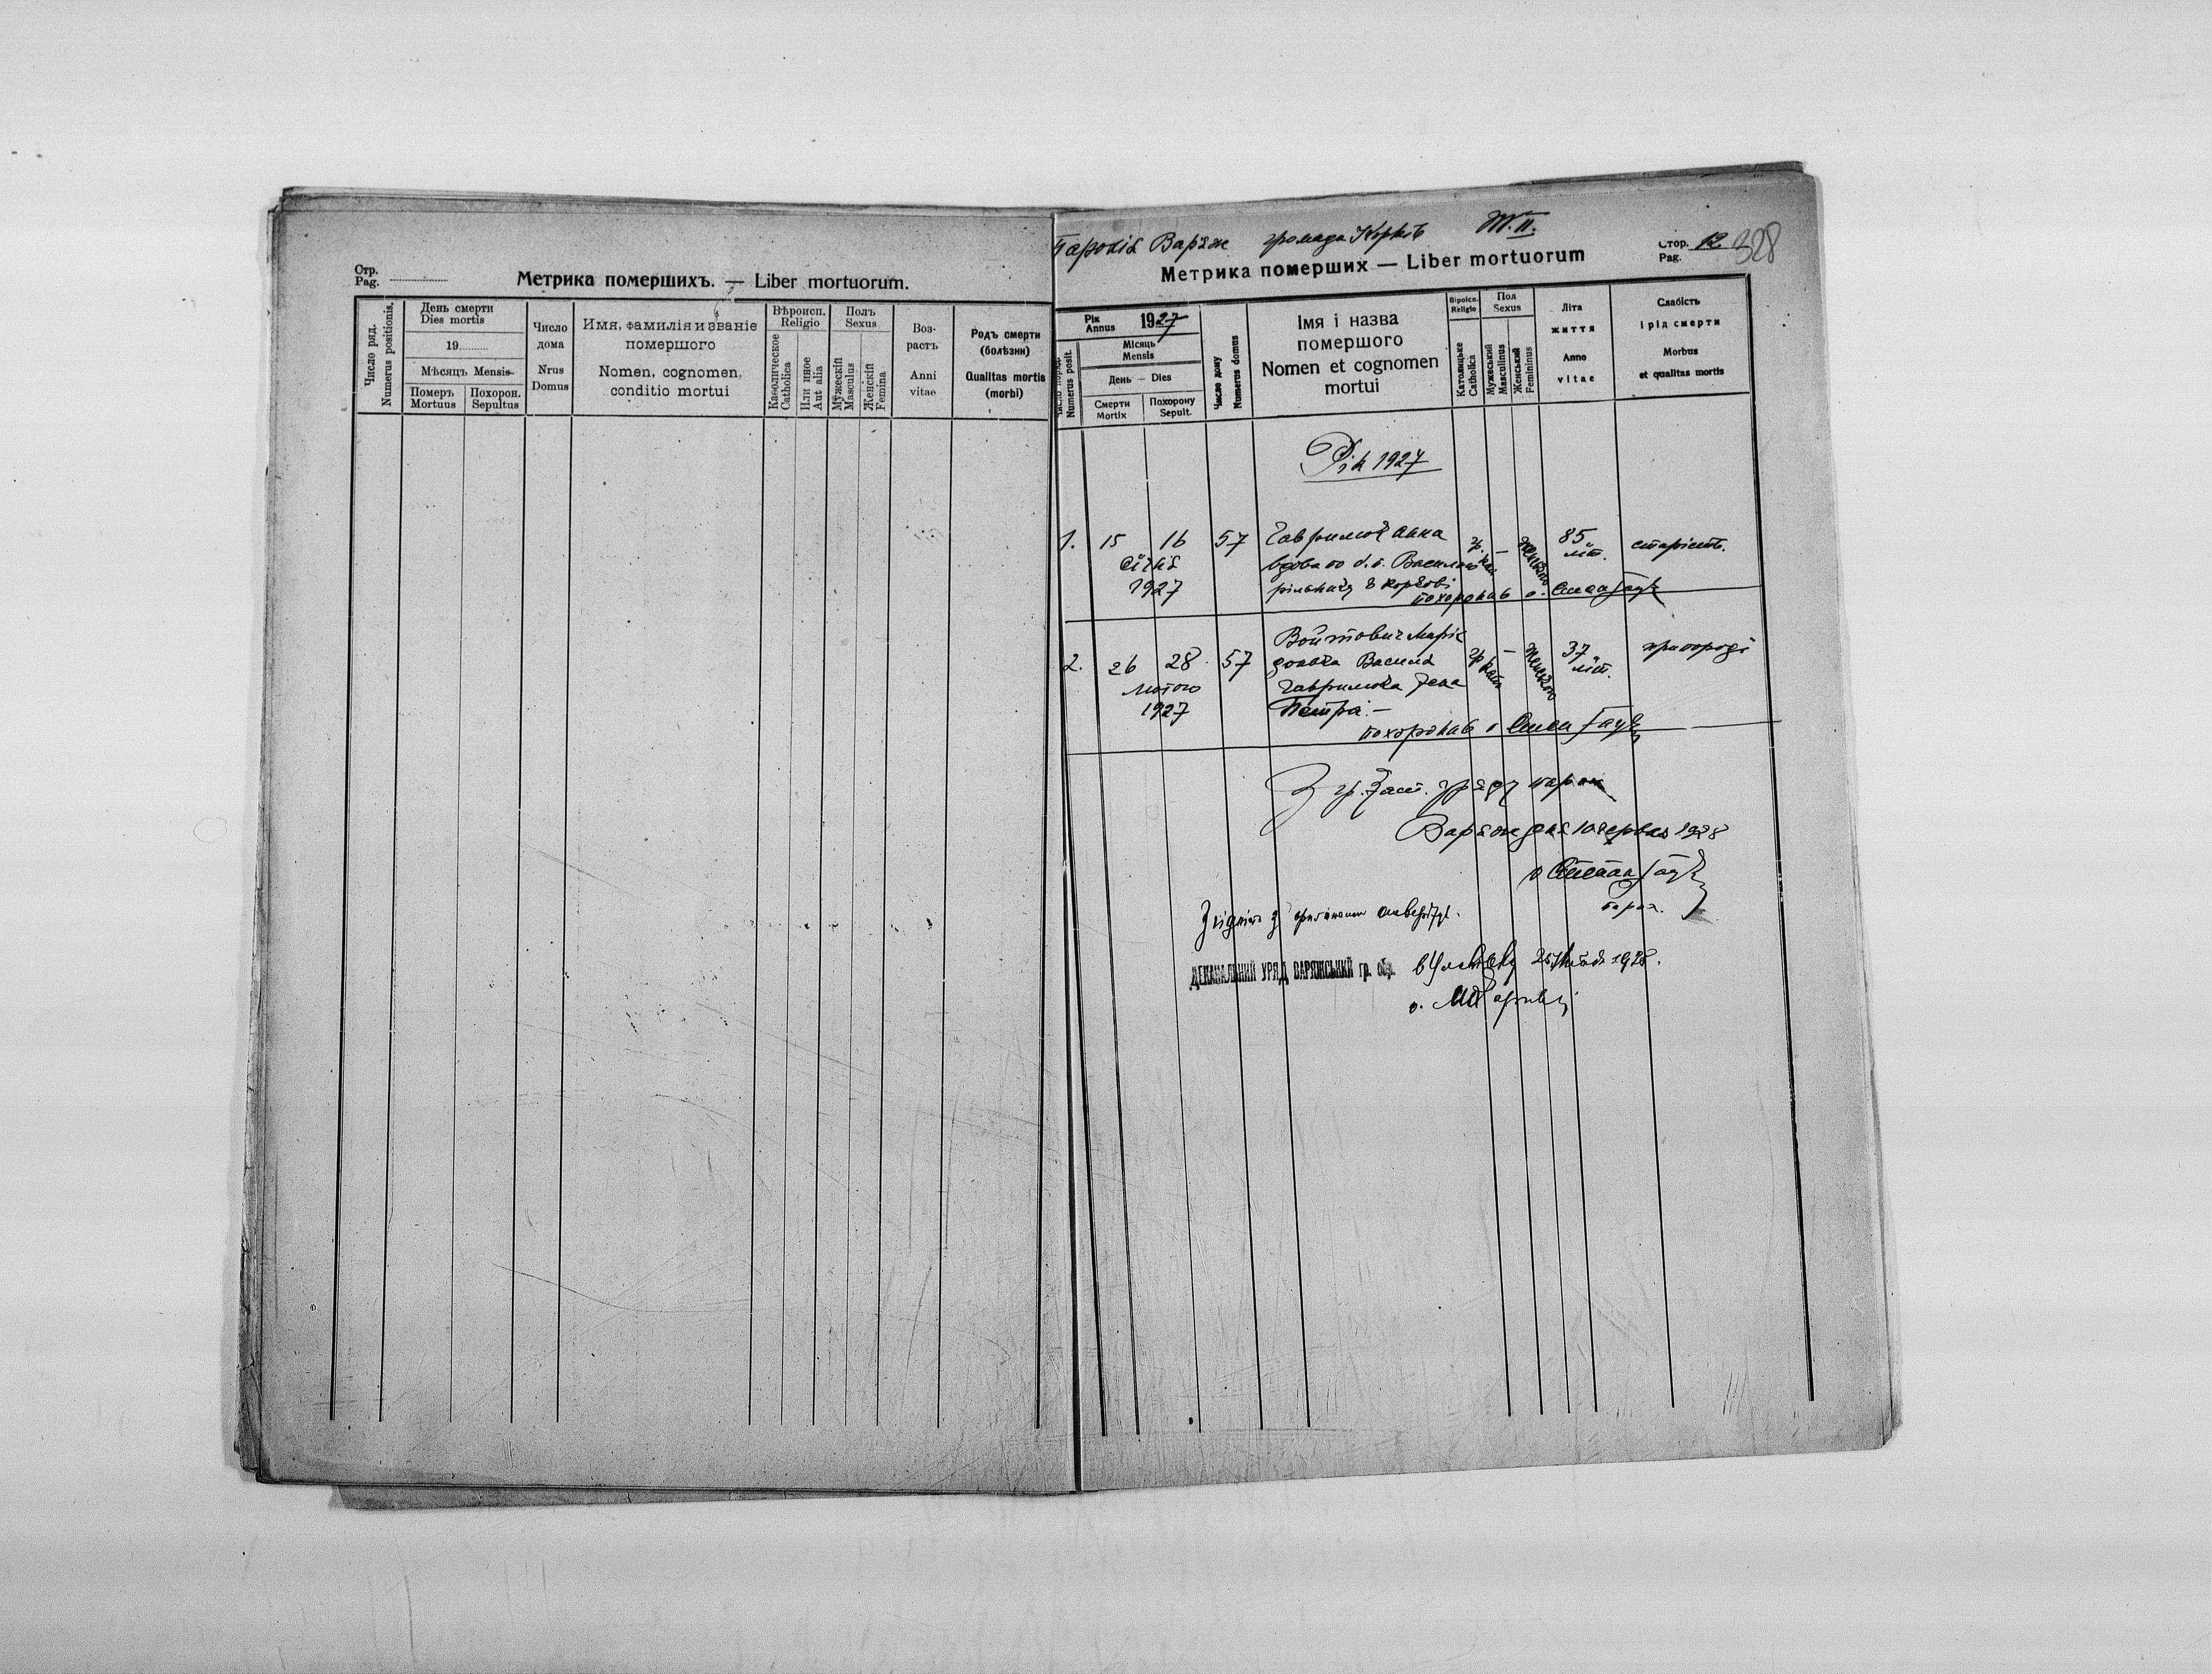 Стр.
Pag.
Метрика помершихъ. — Liber mortuorum.
Число ряд.
Numerus positionis.
День смерти
Dies mortis
19
Мѣсяцъ Mensis
Померъ
Mortuus
Похорон.
Sepultus
Число
дома
Nrus
Domus
Имя, фамилія и званіе
помершого
Nomen, cognomen,
conditio mortui
Вѣроисп.
Religio
Каѳолическое
Catholica
Или иное
Aut alia
Полъ
Sexus
Мужескій
Masculus
Женскій
Femina
Воз-
растъ
Anni
vitae
Родъ смерти
(болѣзни)
Qualitas mortis
(morbi)
Парохія Варяж громада Корків Т. II.
Стор. 12
Pag.
328
Метрика померших — Liber mortuorum
Numerus posit.
Рік
Annus 1927
Місяць
Mensis
День — Dies
Смерти
Mortix
Похорону
Sepult.
Число дому
Numerus domus
Імя і назва
помершого
Nomen et cognomen
mortui
Віроісп.
Religio
Католицьке
Catholica
Пол
Sexus
Мужеський
Masculinus
Женський
Femininus
Літа
життя
Anno
vitae
Слабість
і рід смерти
Morbus
et qualitas mortis
Рік 1927
1. 15 16 57 Гаврилюк Анна гр. — 85 старість.
січня вдова по Василю кат літ.
1927 рільнику в Коркові
похоронив о. Степан
Войтович Марія
2. 26 28 57 донька Василя гр — 37 при породі
лютого Гаврилюка жена кат літ.
1927 Петра. —
похоронив о Степан
З гр. кат. уряду парох
Варяж дня 10 червня 1928
о Степан
парох.
ДЕКАНАЛЬНИЙ УРЯД ВАРЯЖСЬКИЙ гр. обр.
1928.
о.